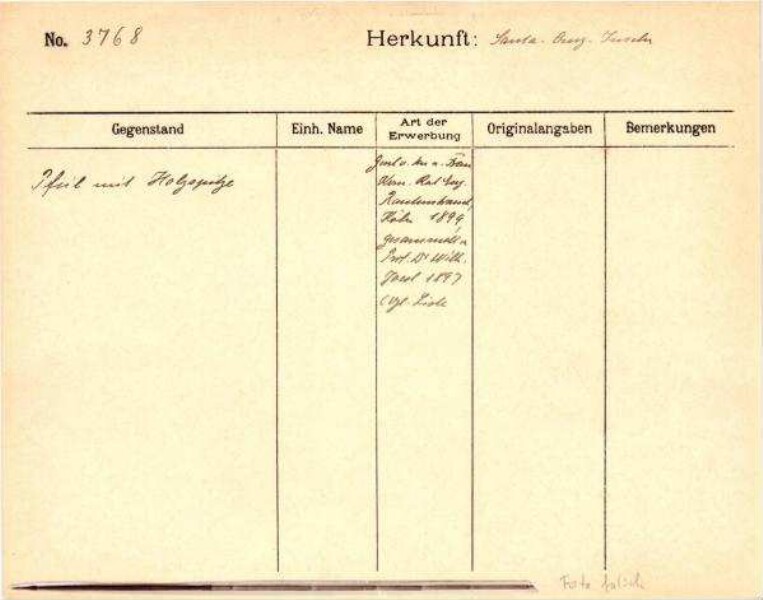 No. 3768
Herkunft: Santa. Cruz. Inseln
Gegenstand
Einh. Name
Art der
Erwerbung
Originalangaben
Bemerkungen
Pfeil mit Holzspitze
Frau
Kom. Rat Eug.
Rautenstrauch,
Köln 1899
gesammelt v.
Prof. Dr Wilh.
Joest 1897
(Vgl. Liste
Foto falsch